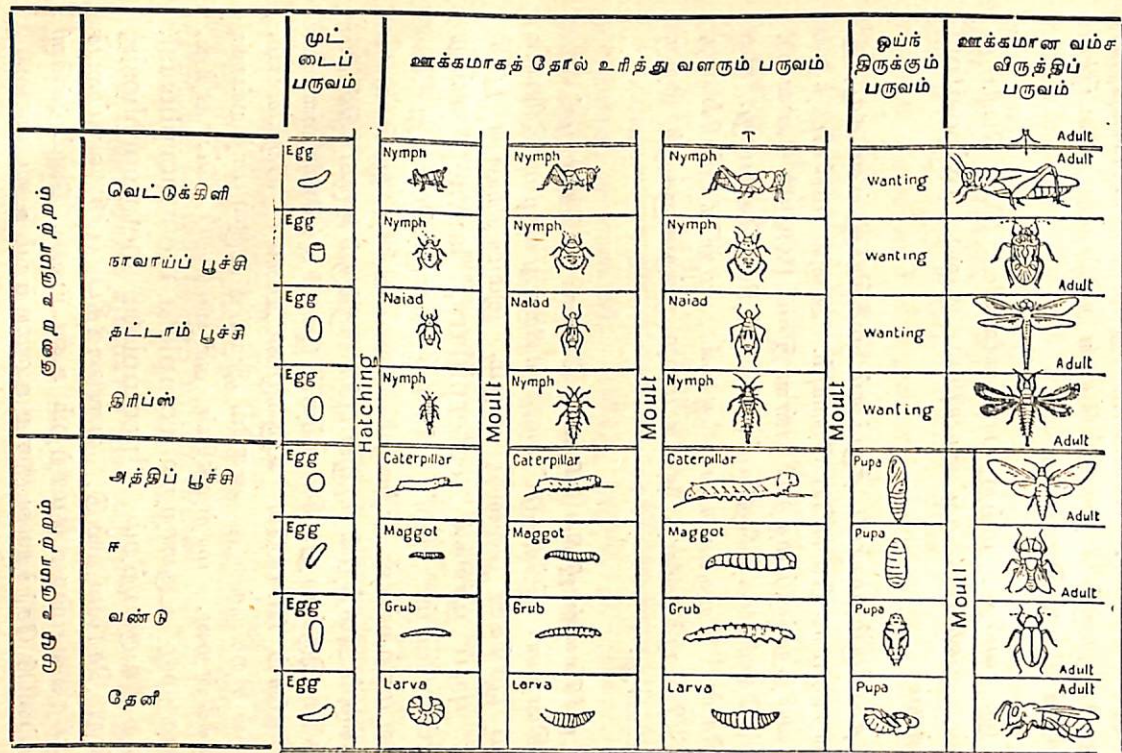 முட்
டைப்
பருவம்
ஊக்கமாகத் தோல் உரித்து வளரும் பருவம்
ஒய்ந்
திருக்கும்
பருவம்
ஊக்கமான வம்ச
விருத்திப்
பருவம்
Adult
குறை உருமாற்றம்
வெட்டுக்கிளி
Egg
Nymph
Nymph
Nymph
Wanting
Adult
நாவாய்ப் பூச்சி
Egg
Nymph
Nymph
Nymph
Wanting
Adult
தட்டாம் பூச்சி
Egg
Naiad
Naiad
Naiad
Wanting
Adult
திரிப்ஸ்
Egg
Nymph
Nymph
Nymph
Wanting
Adult
Hatching
Moult
Moult
Moult
முழு உருமாற்றம்
அத்திப் பூச்சி
Egg
Caterpillar
Caterpillar
Caterpillar
Pupa
Adult
ஈ
Egg
Maggot
Maggot
Maggot
Pupa
Adult
வண்டு
Egg
Grub
Grub
Grub
Pupa
Adult
தேனீ
Egg
Larva
Larva
Larva
Pupa
Adult
Moult